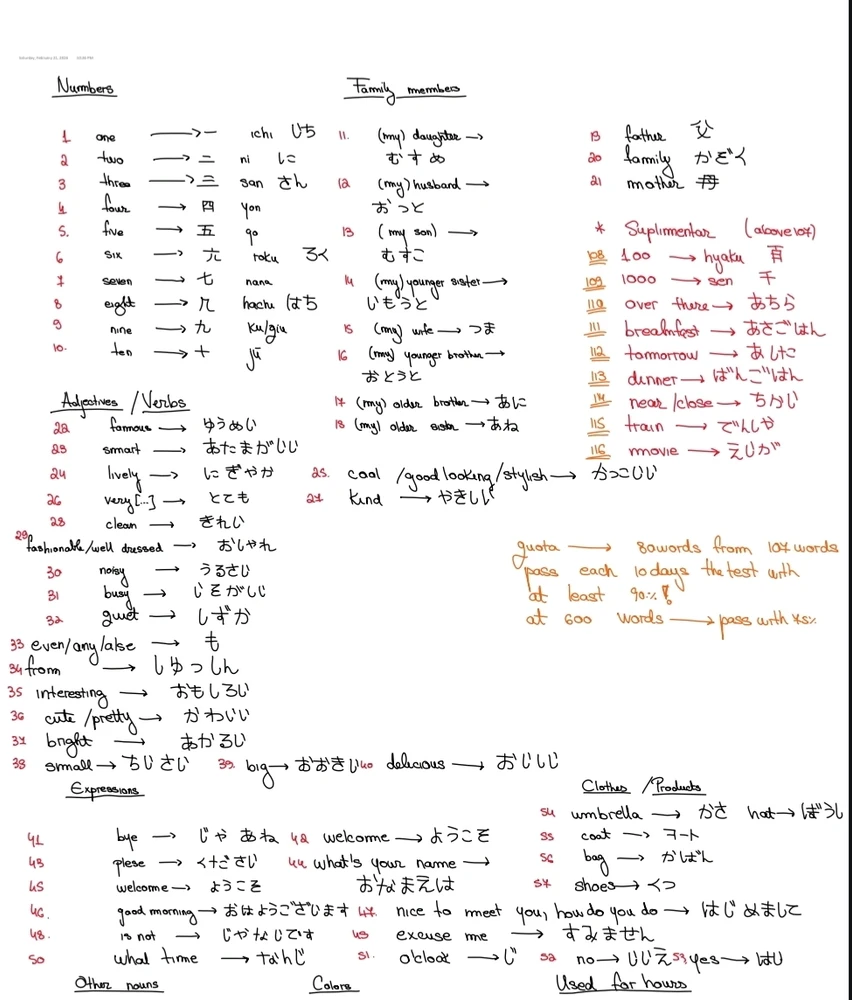 Numbers
1 one → 一 ichi いち
2 two → 二 ni に
3 three → 三 san さん
4 four → 四 yon
5. five → 五 go
6 six → 六 roku ろく
7 seven → 七 nana
8 eight → 八 hachi はち
9 nine → 九 ku/giu
10. ten → 十 jū
Family members
11. (my) daughter →
むすめ
12 (my) husband →
おっと
13 (my son) →
むすこ
14 (my) younger sister →
いもうと
15 (my) wife → つま
16 (my) younger brother →
おとうと
17 (my) older brother → あに
18 (my) older sister → あね
19 father 父
20 family かぞく
21 mother 母
* Suplimentar (above 107)
108 100 → hyaku 百
109 1000 → sen 千
110 over there → あちら
111 breakmfast → あさごはん
112 tomorrow → あした
113 dinner → ばんごはん
114 near/close → ちかい
115 train → でんしゃ
116 movie → えいが
Adjectives / Verbs
22 famous → ゆうめい
23 smart → あたまがいい
24 lively → にぎやか
25. cool /good looking/stylish → かっこいい
26 very[...] → とても
27 kind → やさしい
28 clean → きれい
29 fashionable/well dressed → おしゃれ
30 noisy → うるさい
31 busy → いそがしい
32 quiet → しずか
33 even/any/alse → も
34 from → しゅっしん
35 interesting → おもしろい
36 cute /pretty → かわいい
37 bright → あかるい
38 small → ちいさい 39. big → おおきい 40 delicious → おいしい
quota → 80words from 107 words
pass each 10days the test with
at least 90%!
at 600 words → pass with 75%
Expressions
41 bye → じゃ あね 42 welcome → ようこそ
43 plese → ください 44 what's your name →
45 welcome → ようこそ おなまえは
46. good morning → おはようございます 47. nice to meet you, how do you do → はじめまして
48. is not → じゃないです 49 excuse me → すみません
50 what time → なんじ 51. o'clock → じ 52 no → いいえ 53 yes → はい
Clothes / Products
54 umbrella → かさ hat → ぼうし
55 coat → コート
56 bag → かばん
57 shoes → くつ
Other nouns
Colors
Used for hours